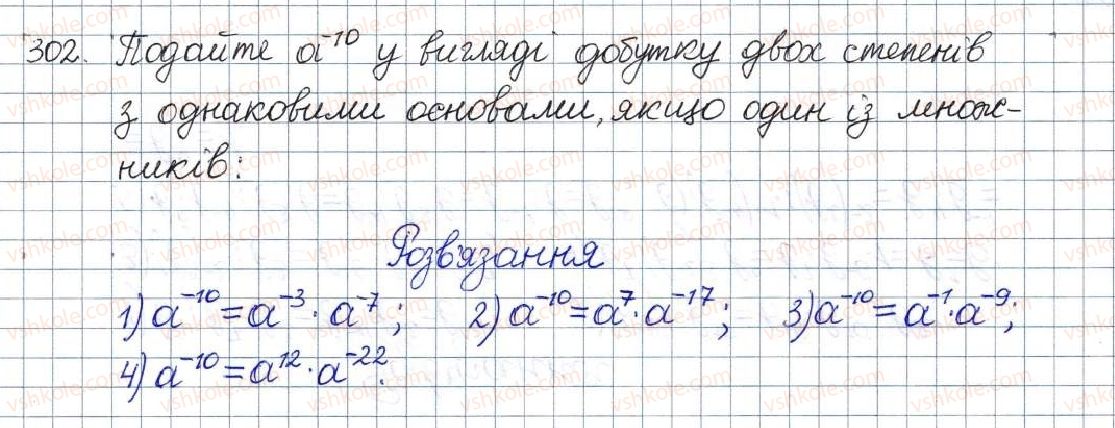 302. Подайте a⁻¹⁰ у вигляді добутку двох степенів
з однаковими основами, якщо один із множ-
ників:
Розв'язання
1) a⁻¹⁰ = a⁻³ · a⁻⁷; 2) a⁻¹⁰ = a⁷ · a⁻¹⁷; 3) a⁻¹⁰ = a⁻¹ · a⁻⁹;
4) a⁻¹⁰ = a¹² · a⁻²².
vshkole.com